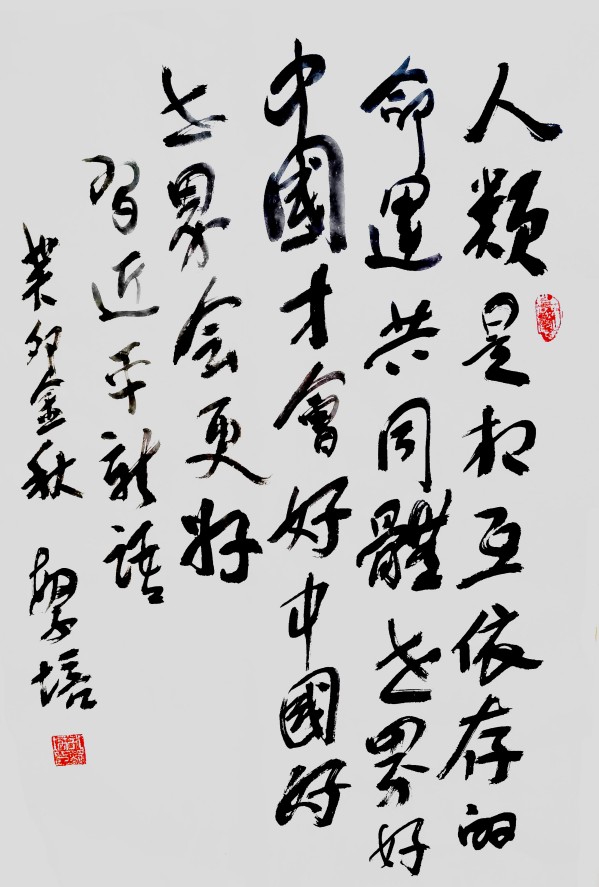 人類是相互依存的
命運共同體世界好
中國才會好中國好
世界会更好
習近平新語
癸卯金秋 培